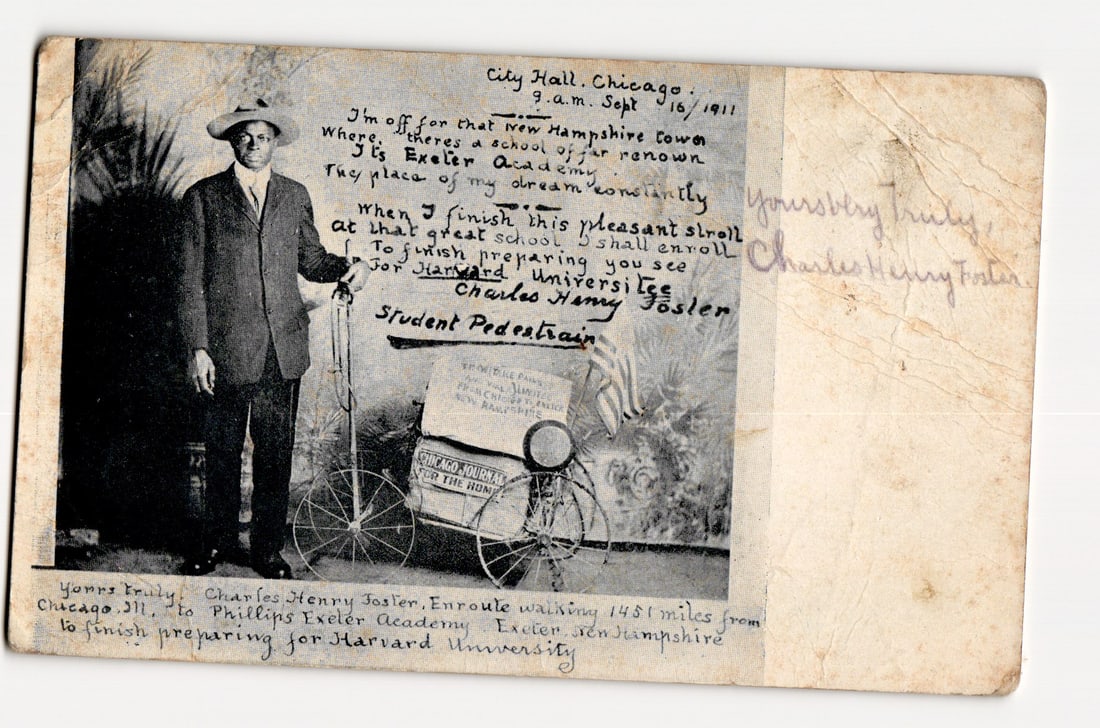 City Hall. Chicago.
9. a.m. Sept 16/1911
I'm off for that New Hampshire town
Where, theres a school of far renown
Its Exeter Academy
The place of my dream constantly
When I finish this pleasant stroll
at that great school, I shall enroll
To finish preparing you see
For Harvard Universitee
Charles Henry Foster
Student Pedestrain
Yours Very Truly,
Charles Henry Foster.
NEW HAMPSHIRE
CHICAGO JOURNAL
FOR THE HOME
Yours truly. Charles Henry Foster. Enroute walking 1451 miles from
Chicago. Ill. to Phillips Exeter Academy Exeter. New Hampshire
to finish preparing for Harvard University